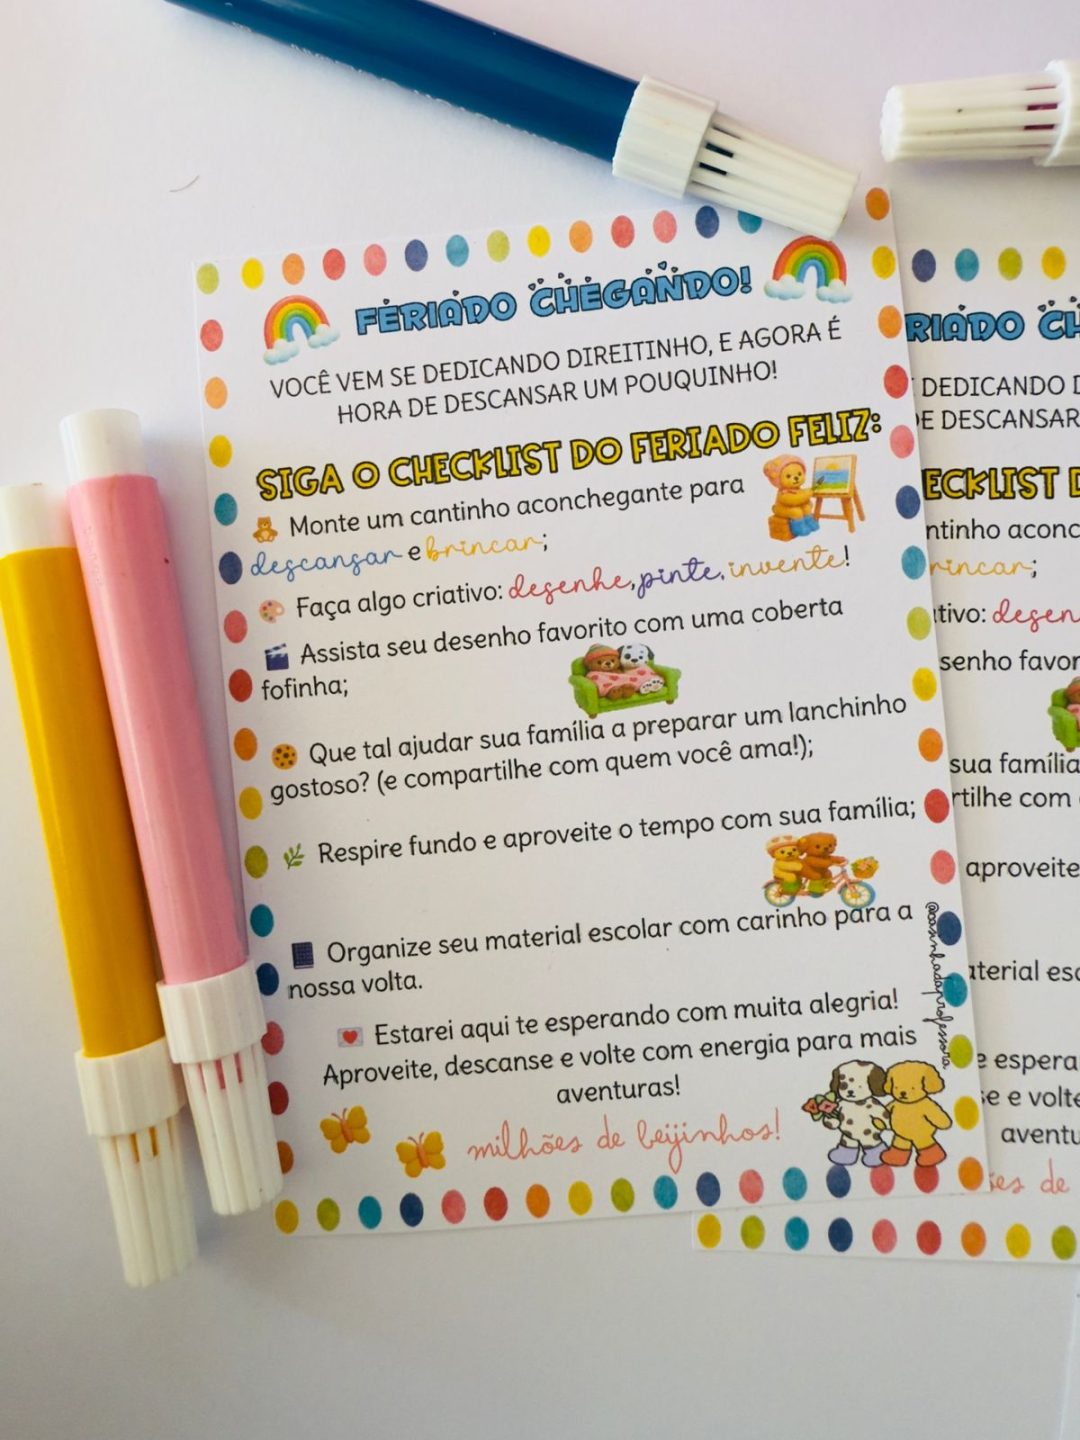 FERIADO CHEGANDO!
VOCÊ VEM SE DEDICANDO DIREITINHO, E AGORA É
HORA DE DESCANSAR UM POUQUINHO!
SIGA O CHECKLIST DO FERIADO FELIZ:
Monte um cantinho aconchegante para
descansar e brincar;
Faça algo criativo: desenhe, pinte, invente!
Assista seu desenho favorito com uma coberta
fofinha;
Que tal ajudar sua família a preparar um lanchinho
gostoso? (e compartilhe com quem você ama!);
Respire fundo e aproveite o tempo com sua família;
Organize seu material escolar com carinho para a
nossa volta.
Estarei aqui te esperando com muita alegria!
Aproveite, descanse e volte com energia para mais
aventuras!
milhões de beijinhos!
@casinhadaprofessora
RIADO CH
DEDICANDO D
DE DESCANSAR
ECKLIST D
ntinho aconc
rincar;
tivo: desen
senho favor
sua família
rtilhe com
aproveite
aterial esc
e espera
e e volte
aventu
es de